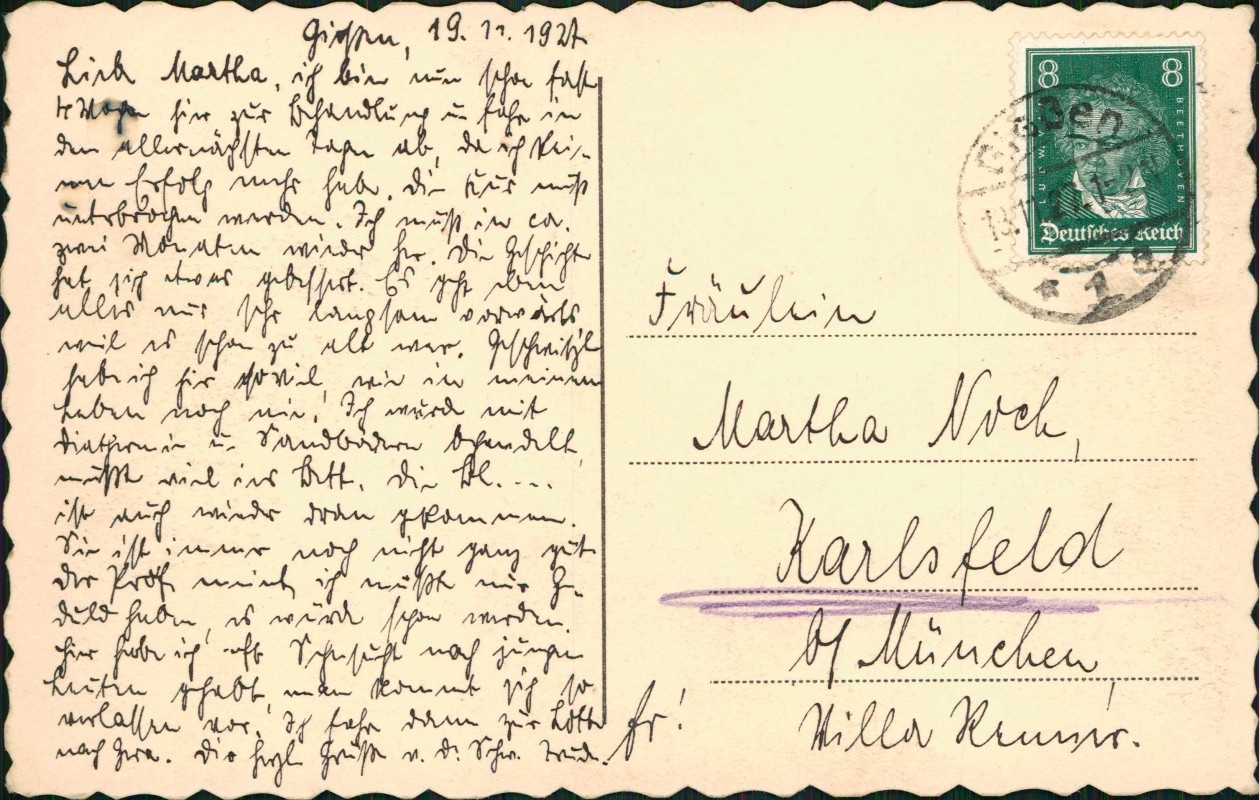 Gießen, 19. 11. 1927
Liebe Martha, ich bin nun schon fast
4 Wochen hier zur Behandlung u. fahre in
den allernächsten Tagen ab, da ich kei-
nen Erfolg mehr habe. Die Kur muß
unterbrochen werden. Ich muß in ca.
zwei Monaten wieder her. Die Geschichte
hat sich etwas gebessert. Es geht eben
alles nur sehr langsam vorwärts
weil es schon zu alt war. Geschwitzt
habe ich hier soviel, wie in meinem
Leben noch nie. Ich wurde mit
Diathermie u. Sandbädern behandelt,
mußte viel ins Bett. Die Bl....
ist auch wieder dran gekommen.
Sie ist immer noch nicht ganz gut
der Prof. meint ich müßte nur Ge-
duld haben, es würde schon werden.
Hier habe ich oft Sehnsucht nach jungen
Leuten gehabt, man kommt sich so
verlassen vor. Ich fahre dann zur Lotte
nach Gera. Dir herzl. Grüße v. d. Schw. Trude.
Fräulein
Martha Noch,
Karlsfeld
b/ München
Villa
fr!
8 8
LUDW. BEETHOVEN
Deutsches Reich
Gießen
1